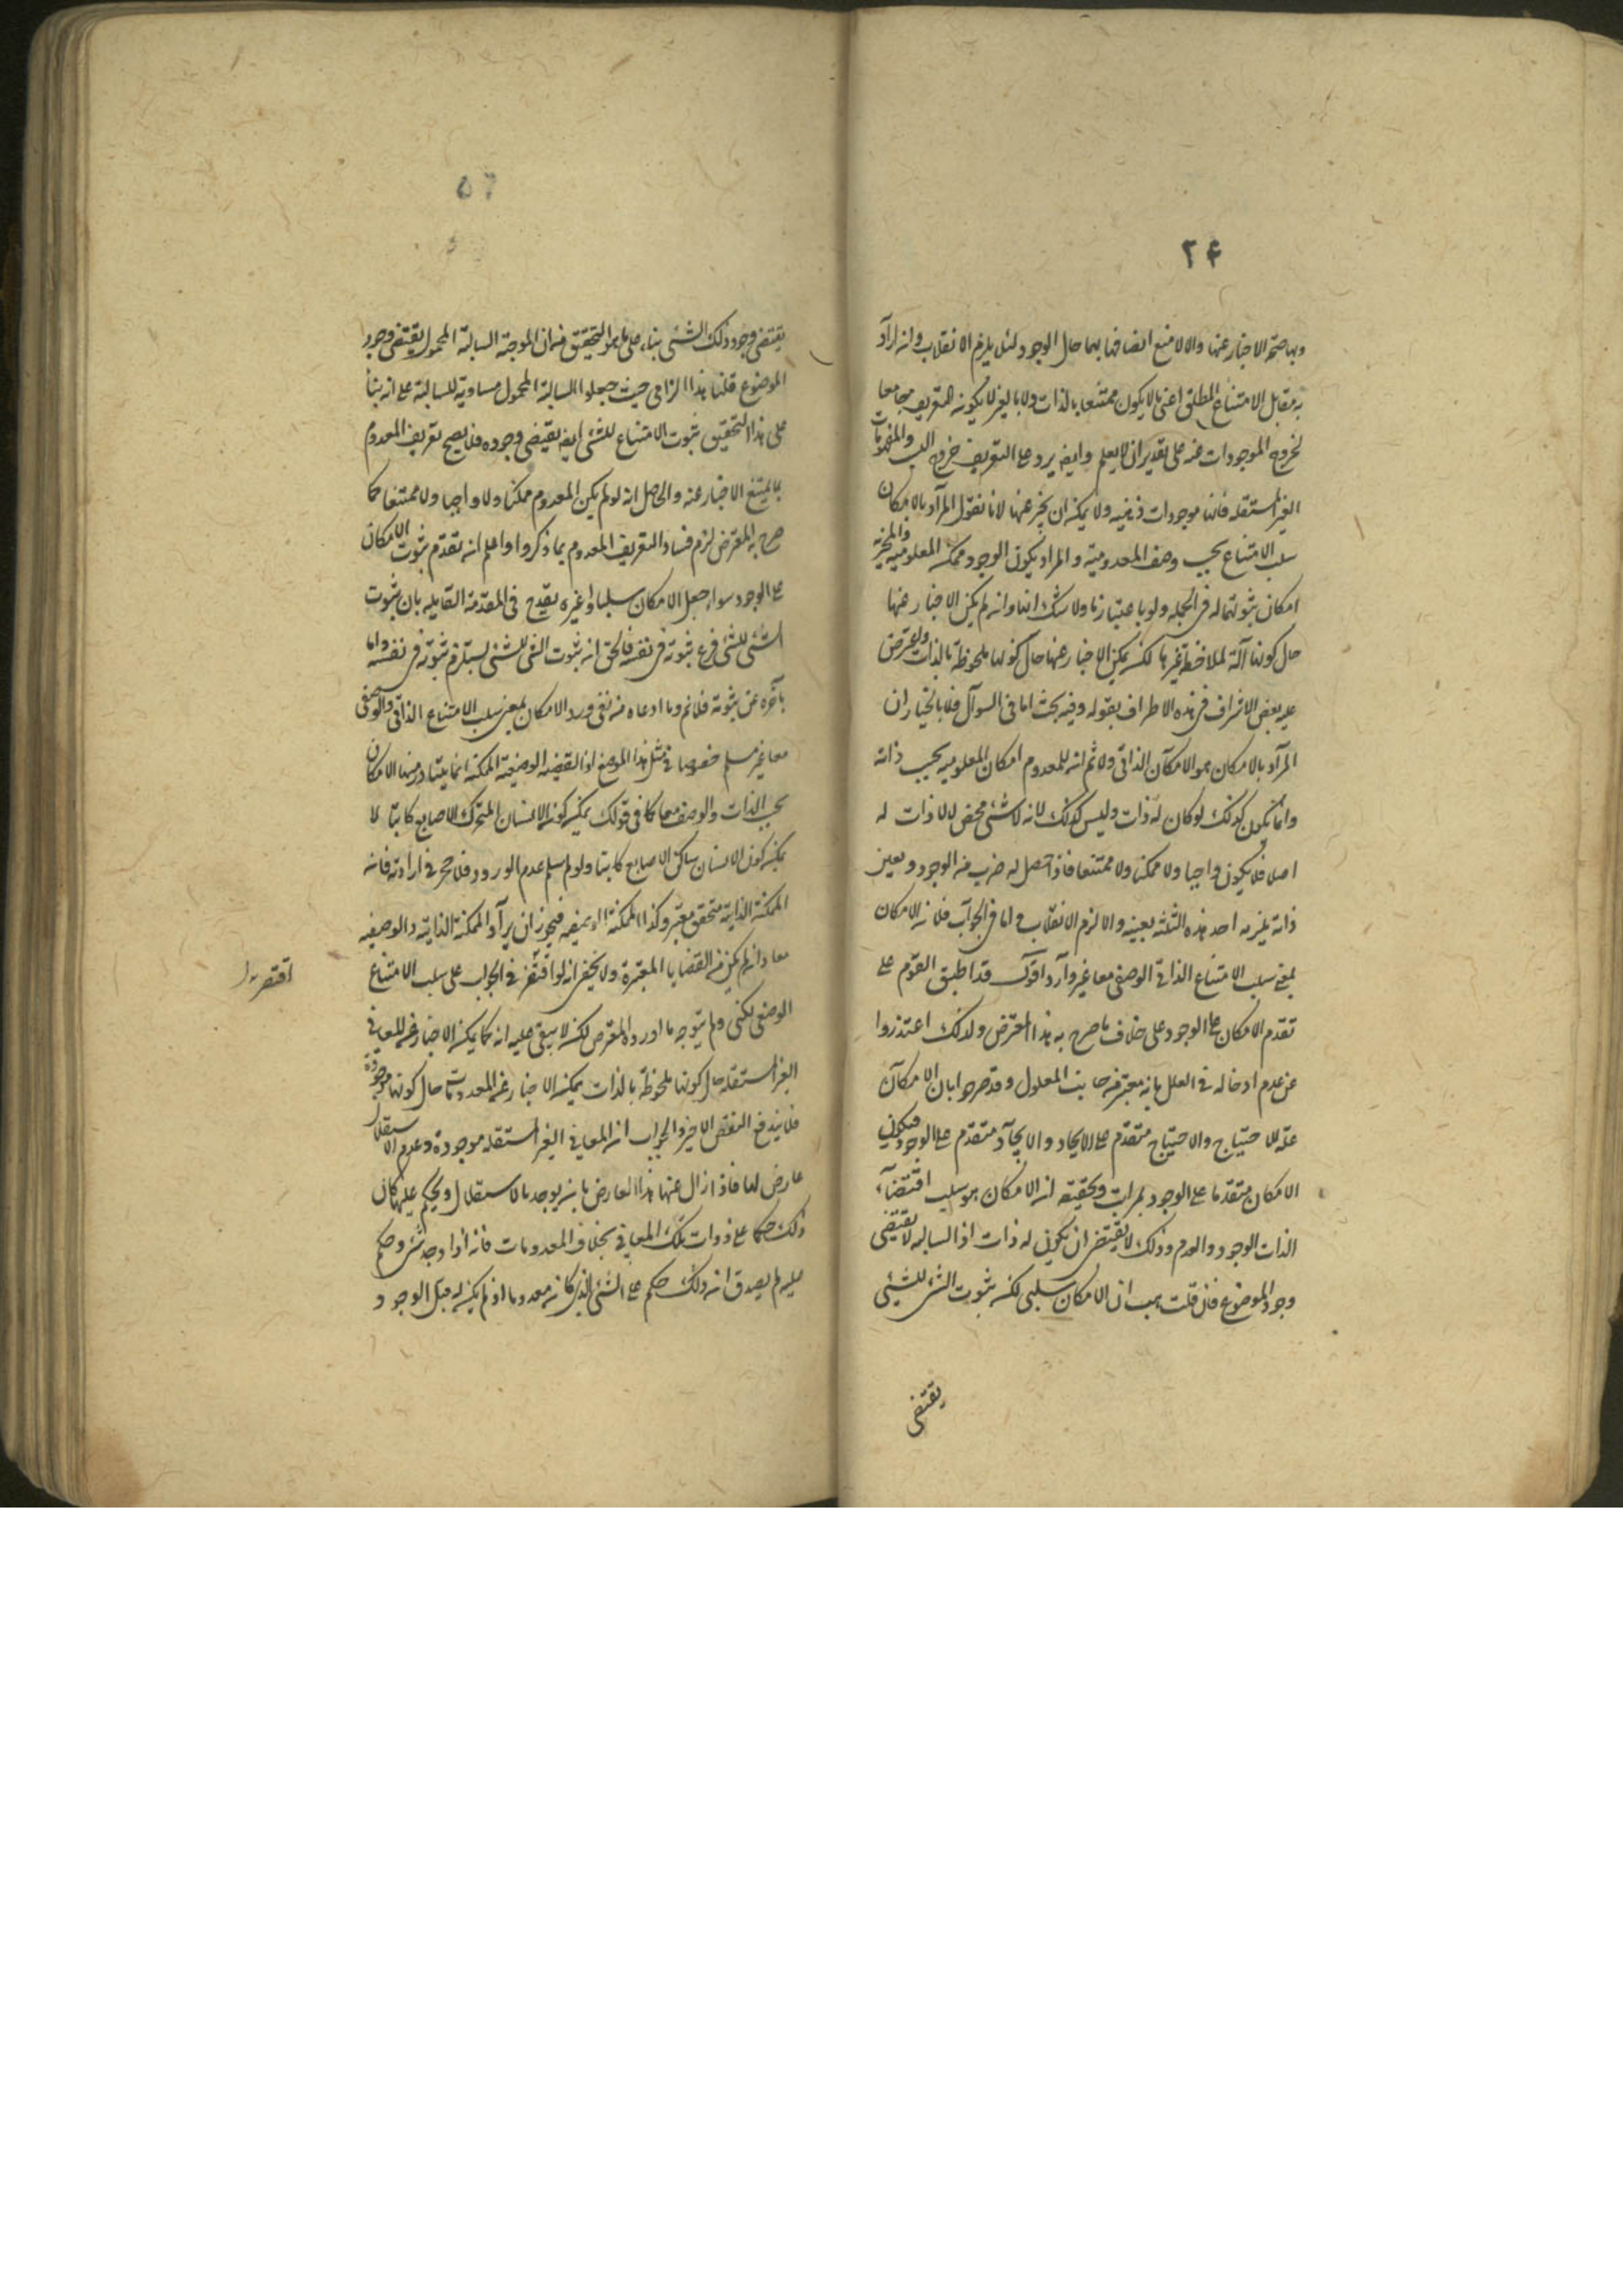 ٢۴
وبها صحة الاخبار عنها والا لامتنع اتصافها بهما حال الوجود لئلا يلزم الانقلاب وان اراد
به مقابل الامتناع المطلق اعنى ما لا يكون ممتنعا بالذات ولا بالغير لا يكون التعريف جامعا
لخروج الموجودات عنه على تقدير ان لا يعلم وايضا يرد على التعريف خروج السلب والمفهومات
الغير المستقلة فانها موجودات ذهنية ولا يمكن ان يخبر عنها لانا نقول المراد بالامكان
سلب الامتناع بحسب وصف المعدومية والمراد بكون الوجود ممكن المعلومية والمخبرية
امكان ثبوتهما له فى الجملة ولو باعتبار ما ولا شك انها وان لم يكن الاخبار عنها
حال كونها آلة لملاحظة غيرها لكن يمكن الاخبار عنها حال كونها ملحوظة بالذات واعترض
عليه بعض الاشراف فى هذه الاطراف بقوله وفيه بحث اما فى السوال فلانا نختار ان
المراد بالامكان هو الامكان الذاتى ولا ثم انه للمعدوم امكان المعلومية بحسب ذاته
وانما يكون كذلك لو كان له ذات وليس كذلك لانه لا شئ محض لا ذات له
اصلا فلا يكون واجبا ولا ممكنا ولا ممتنعا فاذا حصل له ضرب من الوجود ويعين
ذاته يلزمه احد هذه الثلثة بعينه والا لزم الانقلاب واما فى الجواب فلان الامكان
بمعنى سلب الامتناع الذاتى الوصفى معا غير وارد اقول قد اطبق القوم على
تقدم الامكان على الوجود على خلاف ما صرح به هذا المعترض ولذلك اعتذروا
عن عدم ادخاله فى العلل بانه معتبر من جانب المعلول وقد صرحوا بان الامكان
علة للاحتياج والاحتياج متقدم على الايجاد والايجاد متقدم على الوجود فيكون
الامكان متقدما على الوجود بمراتب وتحقيقه ان الامكان هو سلب اقتضاء
الذات الوجود والعدم وذلك لا يقتضى ان يكون له ذات اذ السالبة لا يقتضى
وجود الموضوع فان قلت هب ان الامكان سلبى لكن ثبوت الشئ للشئ
يقتضى
٥٦
يقتضى وجود ذلك الشئ بناء على ما هو التحقيق من ان الموجبة السالبة المحمول يقتضى وجود
الموضوع قلنا هذا الزامى حيث جعلوا السالبة المحمول مساوية للسالبة على انه بناء
على هذا التحقيق ثبوت الامتناع للشئ ايضا يقتضى وجوده فلا يصح تعريف المعدوم
بما يمتنع الاخبار عنه والحاصل انه لو لم يكن المعدوم ممكنا ولا واجبا ولا ممتنعا كما
صرح به المعترض لزم فساد التعريف المعدوم بما ذكروا واعلم انه تقدم ثبوت الامكان
على الوجود سواء جعل الامكان سلبا او غيره يقدح فى المقدمة القائلة بان ثبوت
الشئ للشئ فرع ثبوته فى نفسه فالحق ان ثبوت الشئ للشئ يستلزم ثبوته فى نفسه واما
تأخره عن ثبوته فلا ثم وما ادعاه من نفى ورود الامكان بمعنى سلب الامتناع الذاتى والوصفى
معا غير مسلم خصوصا فى مثل هذا الموضع اذ القضية الوصفية الممكنة انما يتبادر منها الامكان
بحسب الذات والوصف معا كما فى قولك يمكن كون الانسان المتحرك الاصابع كاتبا لا
يمكن كون الانسان ساكن الاصابع كاتبا ولو لم اسلم عدم الورود فلا حجر فى ارادته فانه
الممكنة الذاتية متحقق معتبر وكذا الممكنة الوصفية فيجوز ان يراد الممكنة الذاتية والوصفية
معا وان لم يكن من القضايا المعتبرة ولا يخفى انه لو اقتصر فى الجواب على سلب الامتناع
اقتصر
الوصفى لكفى ولم يتوجه ما اورده المعترض لكن لا يبقى عليه انه كما يمكن الاخبار عن المعانى
الغير المستقلة حال كونها ملحوظة بالذات يمكن الاخبار عن المعدومات حال كونها موجودة
فلا يندفع النقض الاخير والجواب ان المعانى الغير المستقلة موجودة وعدم الاستقلال
عارض لها فاذا زال عنها هذا العارض بانه يوجد بالاستقلال ويحكم عليها كان
ذلك حكما على ذوات تلك المعانى بخلاف المعدومات فانه اذا وجد شئ وحكم
عليه لم يصدق ان ذلك حكم على الشئ الذى كان معدوما اذ لم يكن له قبل الوجود